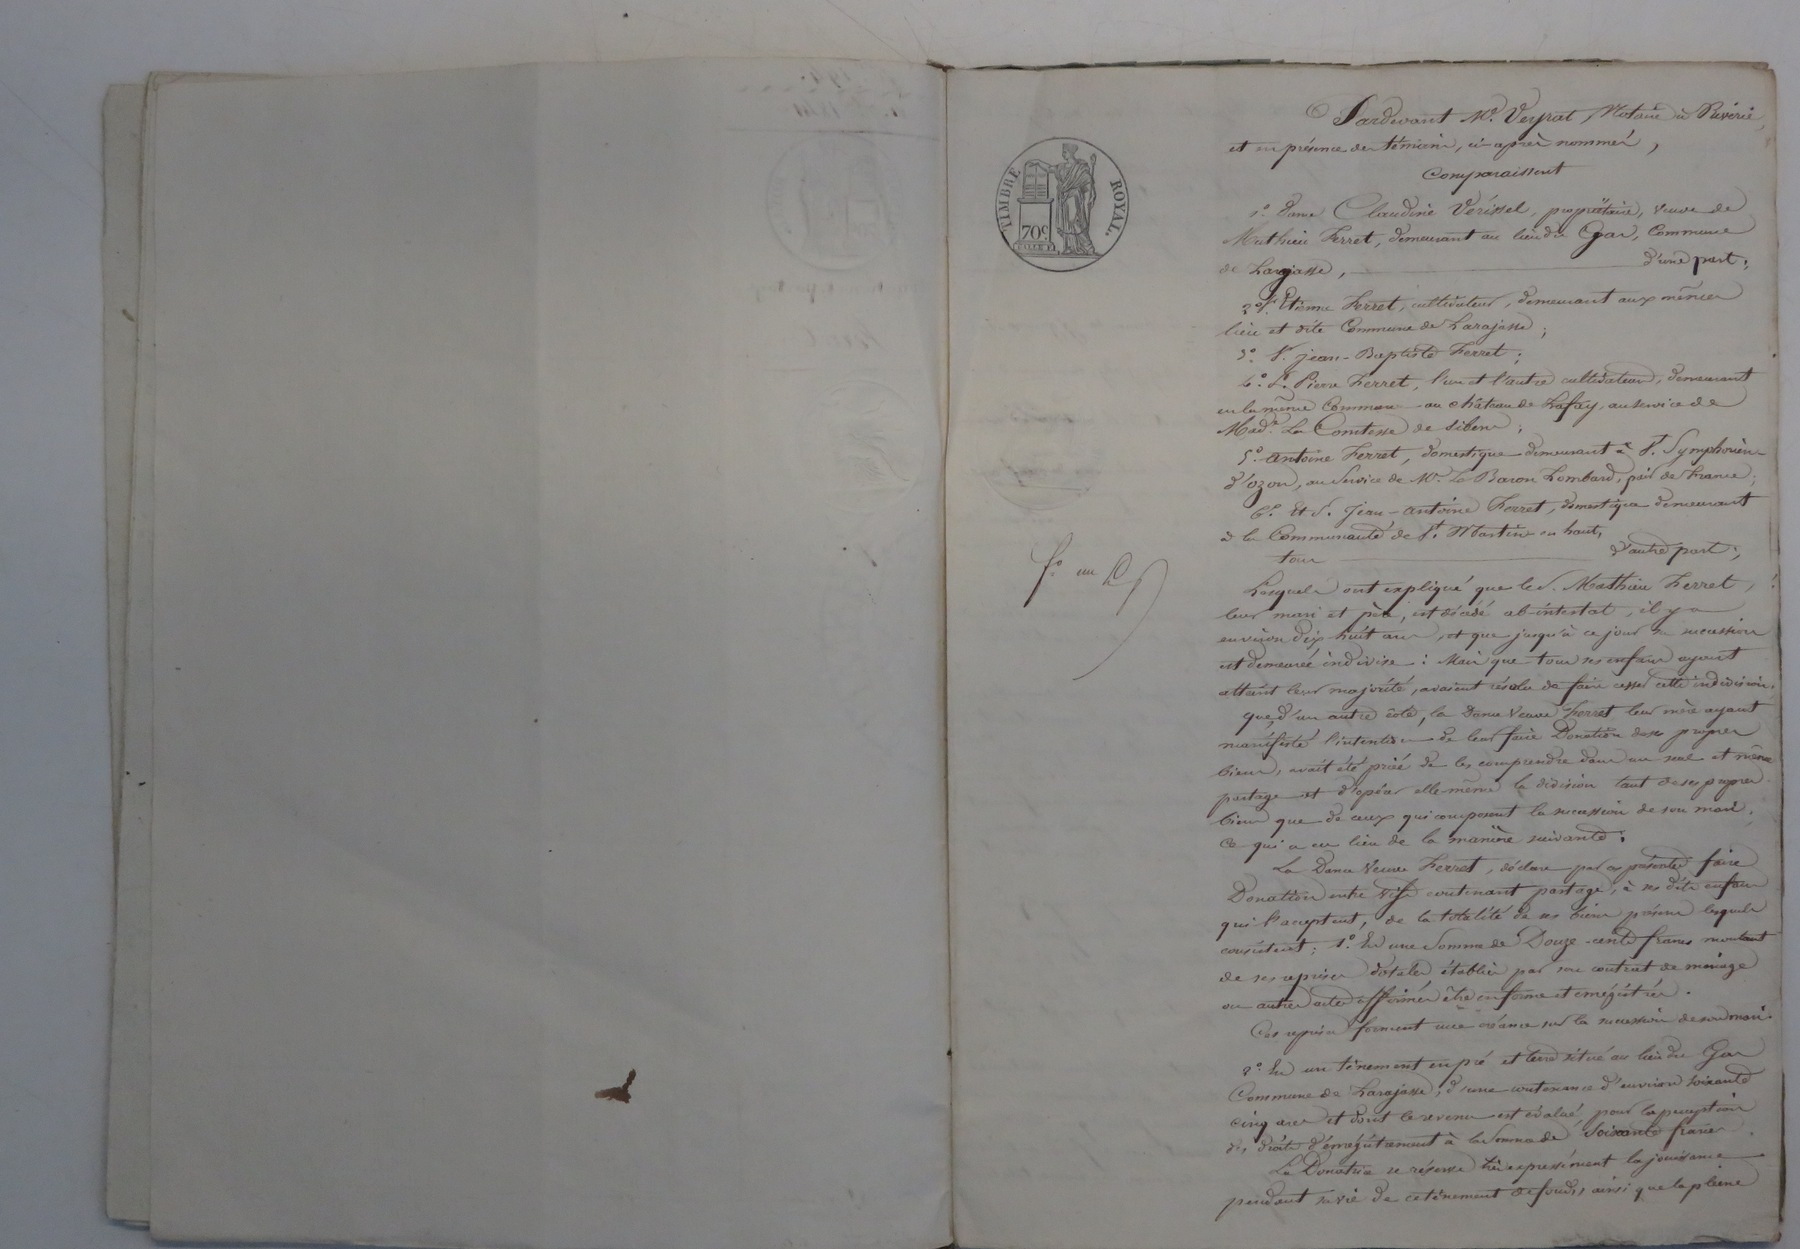 TIMBRE ROYAL.
70c.
fo. un
Pardevant Me. Veyrat Notaire à Riverie,
et en présence des témoins, ci-après nommés,
Comparaissent
1o. Dame Claudine Verissel, propriétaire, veuve de
Mathieu Ferret, demeurant au lieu du Gar, Commune
de Larajasse, d'une part;
2o. S. Etienne Ferret, cultivateur, demeurant aux mêmes
lieu et dite Commune de Larajasse;
3o. S. Jean-Baptiste Ferret;
4o. S. Pierre Ferret, l'un et l'autre cultivateurs, demeurant
en la même Commune au château de Lafay, au service de
Made. La Comtesse de
5o. Antoine Ferret, domestique demeurant à St. Symphorien-
d'ozon, au Service de Mr. Le Baron Lombard, pair de France;
6o. Et S. Jean-Antoine Ferret, domestique demeurant
à la Communauté de St. Martin en haut,
tous d'autre part;
Lesquels ont expliqué que le S. Mathieu Ferret,
leur mari et père, est décédé ab-intestat, il y a
environ dix huit ans, et que jusqu'à ce jour sa succession
est demeurée indivise: Mais que tous ses enfans ayant
atteint leur majorité, avaient résolu de faire cesser cette indivision.
que, d'un autre côté, la Dame Veuve Ferret leur mère ayant
manifesté l'intention de leur faire Donation de ses propres
biens, avait été priée de les comprendre dans un seul et même
partage et d'opérer elle-même la division tant de ses propres
biens que de ceux qui composent la succession de son mari.
Ce qui a eu lieu de la manière suivante:
La Dame Veuve Ferret, déclare par ces présentes faire
Donation entre Vifs contenant partage, à ses dits enfans
qui l'acceptent, de la totalité de ses biens présens lesquels
consistent: 1o. En une Somme de Douze-cents francs montant
de ses reprises dotales établies par son contrat de mariage
ou autres actes affirmés être en forme et enregistrés.
Ces reprises forment une créance sur la succession de son mari.
2o. En un tènement en pré et terre situé au lieu du Gar
Commune de Larajasse, d'une contenance d'environ soixante
cinq ares et dont le revenu est évalué pour la perception
des droits d'enregistrement à la Somme de Soixante francs.
La Donatrice se réserve très expressément la jouissance
pendant sa vie de ce tènement de fonds, ainsi que la pleine